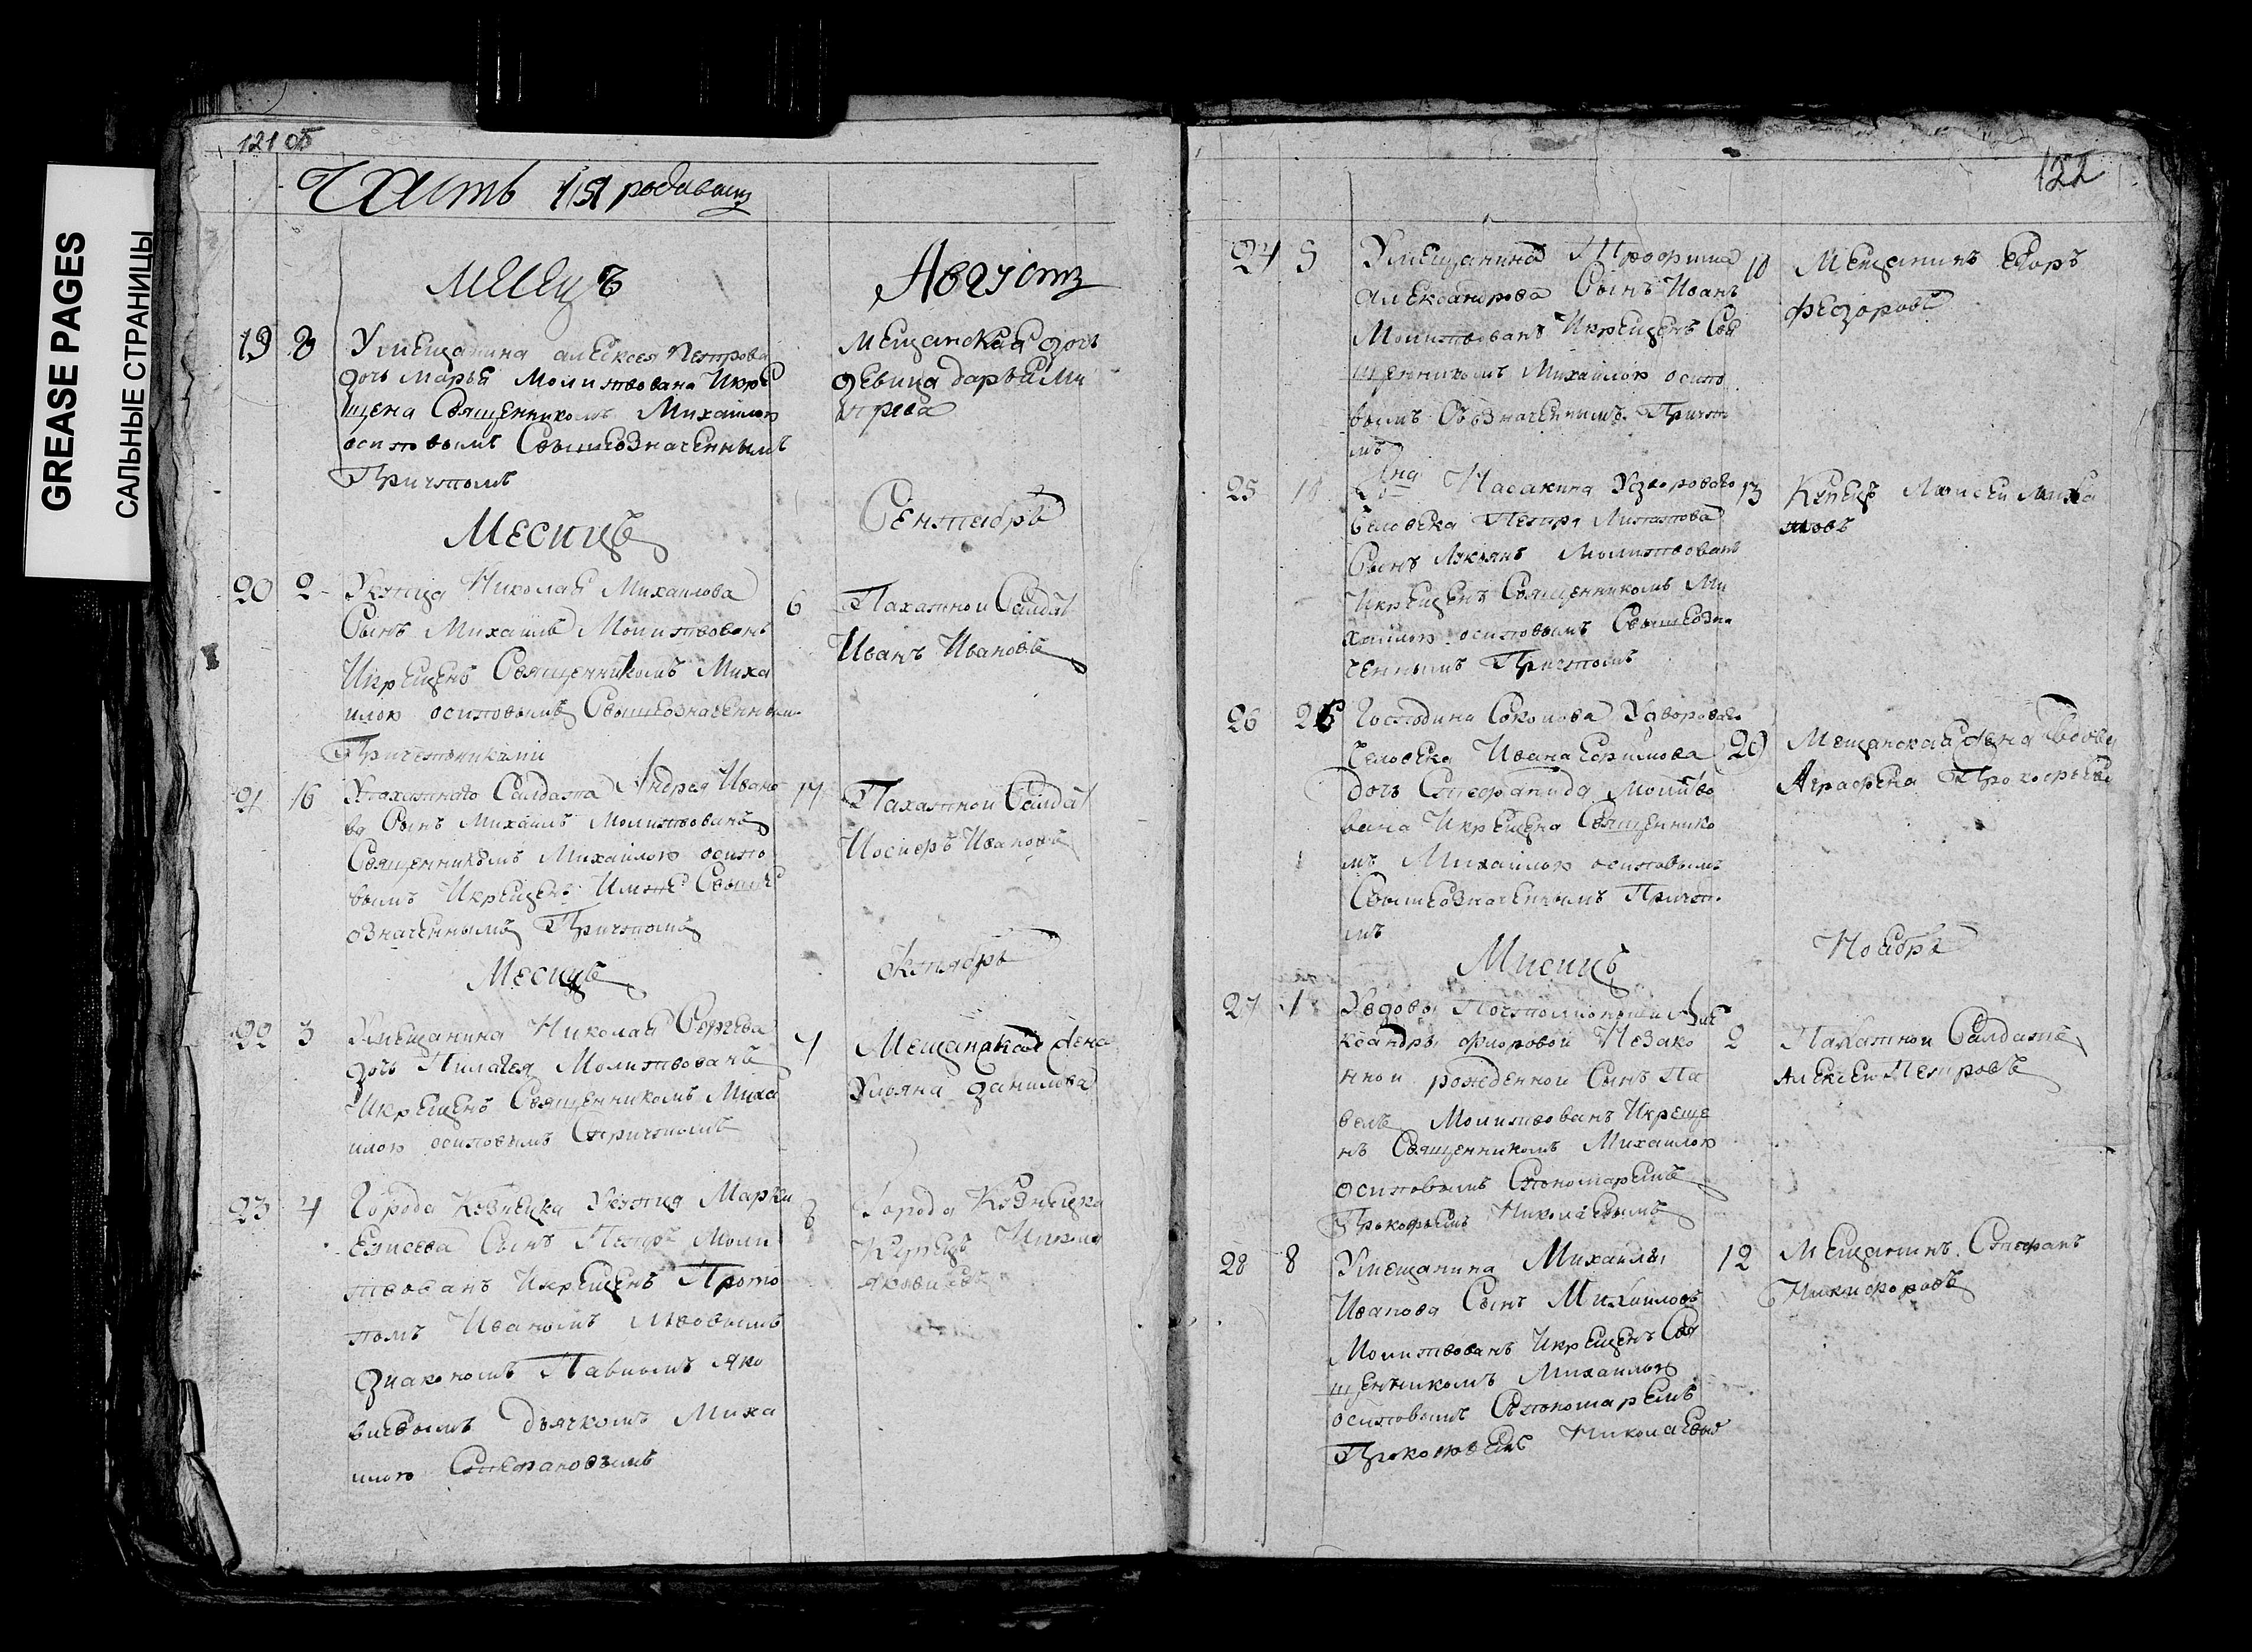 GREASE PAGES
САЛЬНЫЕ СТРАНИЦЫ
121 об
Часть 1я родивши
Месецъ Августъ
19 8 У мещанина алексея Петрова
дочь марья молитвована Икре
щена Священникомъ Михаилою
осиповымъ Свышеозначеннымъ
Причтомъ
Мещанская дочь
девица дарья
Месицъ Сентебрь
20 2 Укупца Николая Михаилова
Сынъ Михаилъ Молитвованъ
Икрещенъ Священникомъ Миха
илою осиповымъ Свышеозначенным
Причетниками
6 Пахатнои Салдат
Иванъ Ивановъ
21 16 Упахатнаго Салдата Андрея Ивано
ва Сынъ Михаилъ Молитвованъ
Священникомъ Михаилою осипо
вымъ Икрещенъ Имже Свыше
означеннымъ Причтомъ
17 Пахатнои Салдат
Иосифъ Ивановъ
Месицъ октябрь
22 3 Умещанина Николая Сергева
дочь Пилагея Молитвована
Икрещенъ Священникомъ Миха
илою осиповымъ Спричтомъ
4 Мещанская жена
Ульяна данилова
23 4 Города Кузнецка Укупца Марка
Елисева Сынъ Петръ Моли
твованъ Икрещенъ Прото
попомъ Иваномъ Львовымъ
диакономъ Павломъ Яко
влевымъ Дьячкомъ Миха
илою Степановымъ
8 Города Кузнецка
Купецъ Никола
яковлевъ
122
24 5 Умещанина Трофима
александрова Сынъ Иванъ
Молитвованъ Икрещенъ Свя
щенникомъ Михаилою осипо
вымъ Сьозначеннымъ Причто
мъ
10 Мещанинъ Егоръ
федоровъ
25 10 Гдна Насакина Удвороваго
Человека Петра
Сынъ Лукиянъ Молитвованъ
Икрещенъ Священникомъ Ми
хаилою осиповымъ Свышеозна
ченнымъ Причтомъ
13 Купецъ Моисеи Миха
иловъ
26 26 Господина Соколова Удвороваго
Человека Ивана Ефимова
Дочь Степанида Молитво
вана Икрещена Священнико
мъ Михаилою осиповымъ
Свышеозначеннымъ Причто
мъ
29 Мещанская жена Вдова
Аграфена Прокофьева
Мисицъ Ноябрь
27 1 Увдовы Почталионши Але
ксандры Флоровой Незако
нно рожденной Сынъ Па
велъ Молитвованъ Икреще
нъ Священникомъ Михаилою
осиповымъ Спономаремъ
Прокофьемъ Николаевымъ
2 Пахатнои Салдатъ
Алексеи Петровъ
28 8 Умещанина Михаилы
Иванова Сынъ Михаиловъ
Молитвованъ Икрещенъ Свя
щенникомъ Михаилою
осиповымъ Спономаремъ
Прокопьемъ Николаевы
12 Мещанинъ Степанъ
Никифоровъ